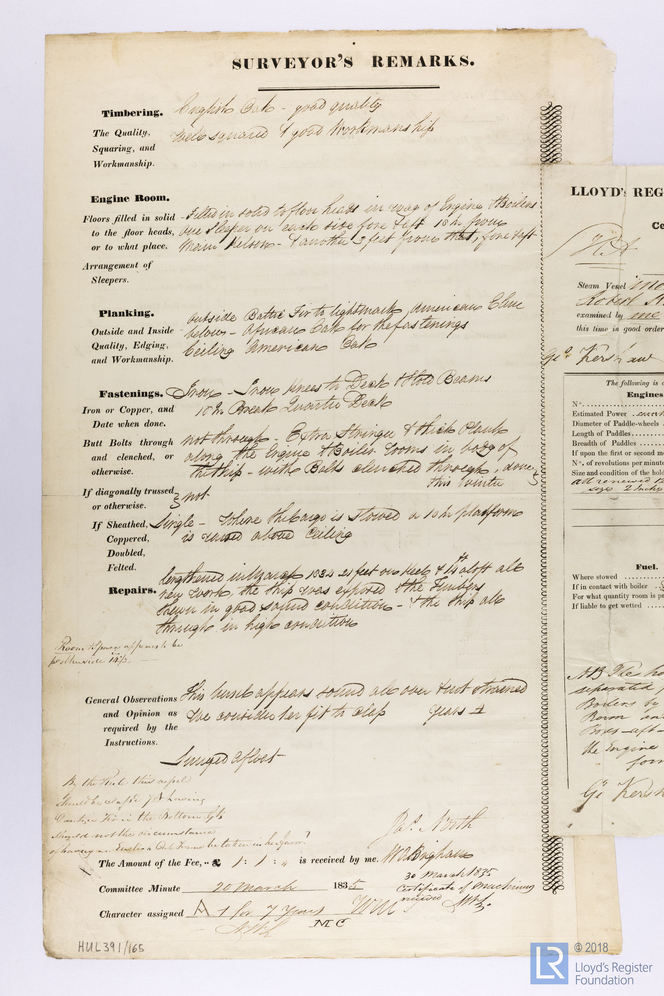 SURVEYOR'S REMARKS.
Timbering. English Oak - good quality
The Quality, Squaring, and Workmanship. Well squared & good Workmanship
Engine Room.
Floors filled in solid to the floor heads, or to what place. Filled in solid to floor heads in way of Engine & Boilers
one Sleeper on each side fore & aft 18 In from
Main Kelson - & another 3 feet from that, fore & aft
Arrangement of Sleepers.
Planking. Outside Baltic Fir to lightmark, American Elm
Outside and Inside Quality, Edging, and Workmanship. below - African Oak for the fastenings
Ceiling American Oak
Fastenings. Iron - Iron knees to Deck & Hold Beams
Iron or Copper, and Date when done. 10 In Break Quarter Deck
Butt Bolts through and clenched, or otherwise. not through - Extra Stringer & thick Plank
along the Engine & Boiler rooms in body of
the ship - with Bolts clenched through, done
this Winter
If diagonally trussed, or otherwise. not
If Sheathed, Coppered, Doubled, Felted. Single - Where the Cargo is Stowed a 10 In platform
is raised above Ceiling
Repairs. lengthened in March 1834 21 feet on keel & 14 ft aloft all
new work, the ship was exposed & the Timbers
shewn in good sound condition - & the ship all
through in high condition
Room & Space appears to be
General Observations and Opinion as required by the Instructions. This vessel appears sound all over & not strained
We consider her fit to class years
Surveyed afloat
By the Rule this vessel
should be class'd 7 yrs having
Jas. North
The Amount of the Fee, £ 1 : 1 : „ is received by me, W Bingham
30 March 1835
Certificate of Machinery
received
Committee Minute 20 March 1835
Character assigned A 1 for 7 Years
MC
HUL391/165
LLOYD'S REG
Ce
Steam Vessel
Robert
examined by me
this time in good order
Geo. Kershaw
The following is
Engines
No.
Estimated Power
Diameter of Paddle-wheels
Length of Paddles
Breadth of Paddles
If upon the first or second mo
No. of revolutions per minute
Size and condition of the hold
all renewed
size 2 Inche
Fuel.
Where stowed
If in contact with boiler
For what quantity room is pr
If liable to get wetted
NB The
seperated
Boilers by
Room and
the Engine
Geo. Kersh
LR © 2018
Lloyd's Register
Foundation